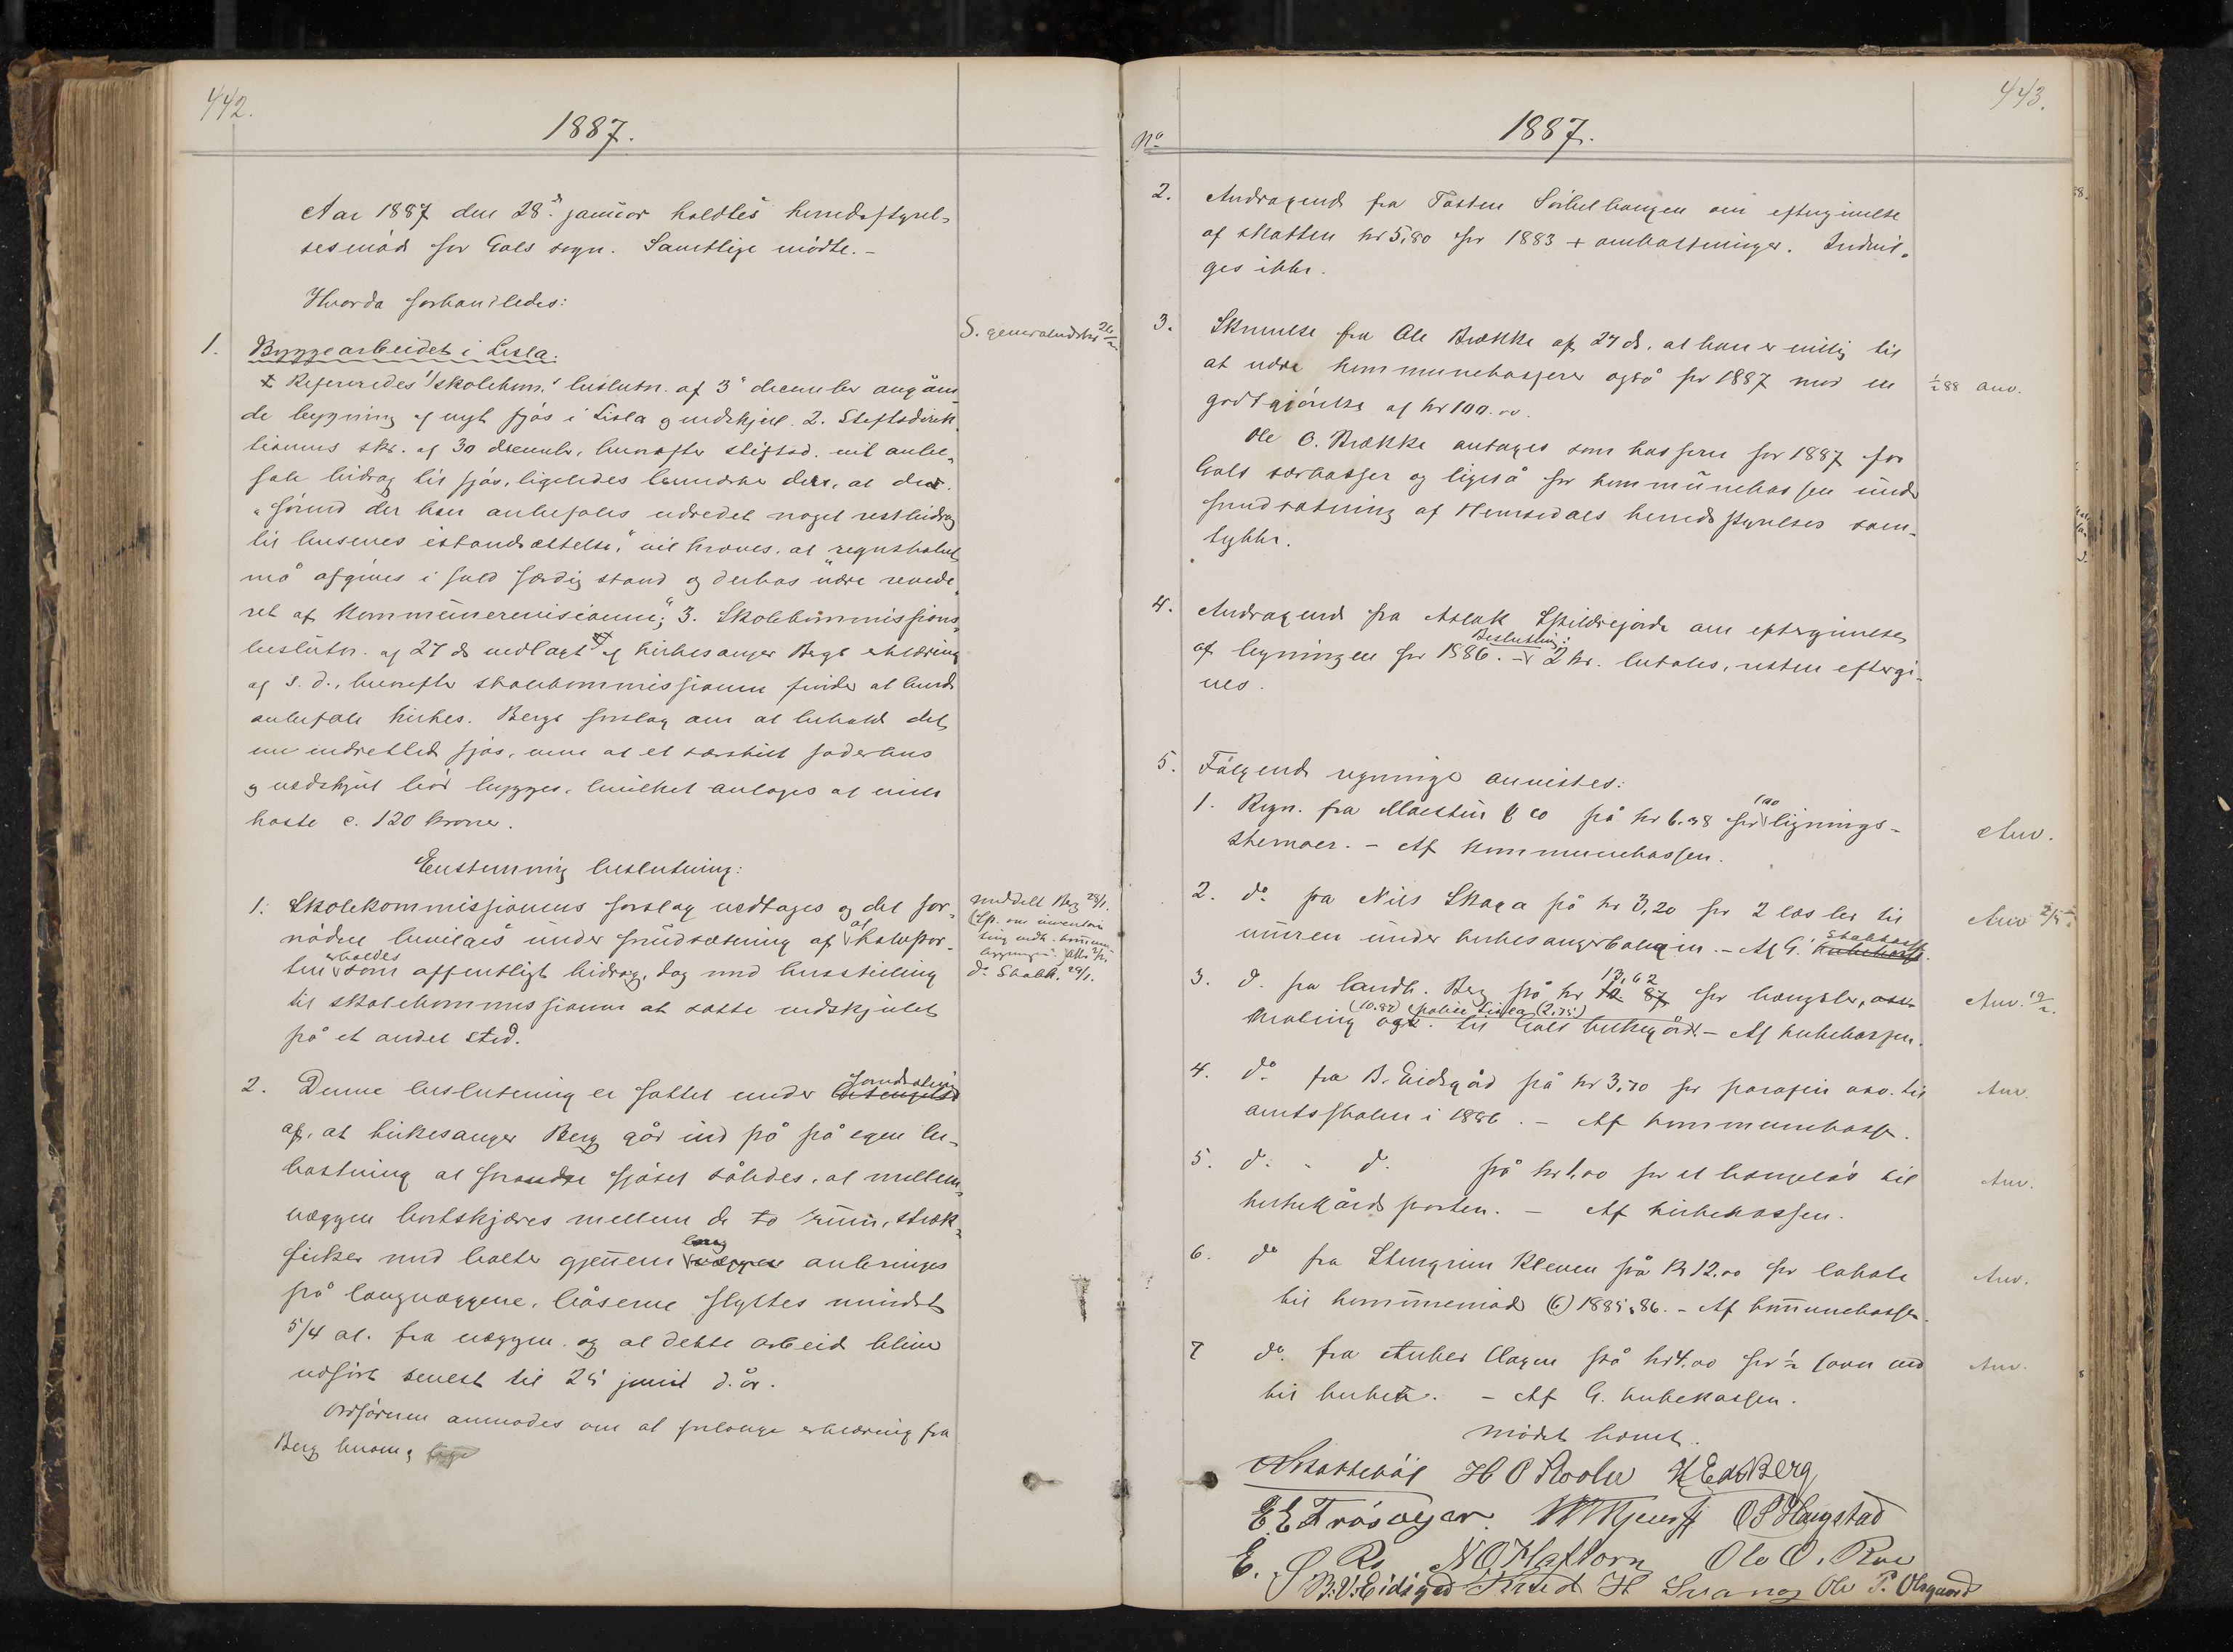 442.
1887.
Aar 1887 den 28de januar holdtes herredsstyrel-
sesmöde for Gols sogn. Samtlige mödte. -
Hvorda forhandledes:
1. Byggearbeidet i Lisla:
S. generalindstr 26/2
Refereredes 1/ skolekom.s beslutn. af 3de december angåen-
de bygning af nyt fjös i Lisla og vedskjul. 2. Stiftsdirek-
tionens skr. af 30 december, hvorefter stiftsd. vil anbe-
fale bidrag til fjös, ligeledes bemærker den, at der
"förend der kan anbefales udredet noget restbidrag
til husenes istandsættelse," vil kræves, at regnskabet
må afgives i fuld færdig stand og derhos "være revide-
ret af kommunerevisionen"; 3. Skolekommissions-
beslutn. af 27 ds vedlagt af kirkesanger Bergs erklæring
af s. d., hvorefter skolekommissionen finder at burde
anbefale kirkes. Bergs forslag om at beholde det
nu indrettede fjös, men at et særskilt foderhus
og vedskjul bör bygges, hvilket antages at ville
koste c. 120 kroner.
Enstemmig beslutning:
1. Skolekommissionens forslag vedtages og det for-
nödne bevilges under forudsætning af at halvpar-
ten erholdes som offentligt bidrag, dog med henstilling
til skolekommissionen at sætte vedskjulet
på et andet sted.
meddelt Berg 29/1.
do Skolek. 29/1.
2. Denne beslutning er fattet under forudsætning
af, at kirkesanger Berg går ind på på egen be-
kostning at forandre fjöset således, at mellem-
væggen bortskjæres mellem de to rum, stræk-
fisker med bolter gjennem væggen anbringes
på langvæggene, båsene flyttes mindst
5/4 al. fra væggen og at dette arbeid bliver
udfört senest til 25 juni d. år.
Ordföreren anmodes om at forlange erklæring fra
Berg herom;
443.
No
1887.
2. Andragende fra Tosten Sörbelhaugen om eftergivelse
af skatten kr 5,80 for 1883 + omkostninger. Indvil-
ges ikke.
3. Skrivelse fra Ole Brække af 27 ds. at han er villig til
at være kommunekasserer også for 1887 mod en
godtgjörelse af kr 100.00.
1/2 88 anv.
Ole O. Brække antages som kasserer for 1887 for
Gols særkasser og ligeså for kommunekassen under
forudsætning af Hemsedals herredsstyrelses sam-
tykke.
4. Andragende fra Aslak Skildregjorde om eftergivelse
af ligningen for 1886. - Beslutning: 2 kr. betales, resten eftergi-
ves.
5. Fölgende regninger anvistes:
1. Regn. fra Malling & co på kr 6.38 for 100 lignings-
skemaer. - Af kommunekassen.
Anv.
2. do fra Nils Skaga på kr 3,20 for 2 læs ler til
muren under kirkesangerboligen. - Af G. skolekasse.
Anv 2/5
3. d. fra landh. Berg på kr 13,62 for hængsler,
maling (10.87) til Gols kirkegård - Af kirkekassen.
Anv. 19/2.
4. do fra B. Eidsgård på kr 3,70 for parafin osv. til
amtsskolen i 1886. - Af kommunekasse.
Anv.
5. d. " d. på kr 1,00 for et hængelås til
kirkegårdsporten. - Af kirkekassen.
Anv.
6. do fra Stengrim Kleven på kr 12.00 for lokale
til kommunemöder (6) 1885 & 86. - Af kommunekassen.
Anv.
7 do. fra Anders Hagen på kr 4.00 for 1/2 favn ved
til kirken. - Af G. kirkekassen.
Anv.
Mödet hævet.
H O Skolu H E Berg
E E Trösvejer. O S Haugstad
E. Ø Ro N O Haftorn Ole O. Roe
B. O. Eidsgård H Svanög Ole P. Olsgaard